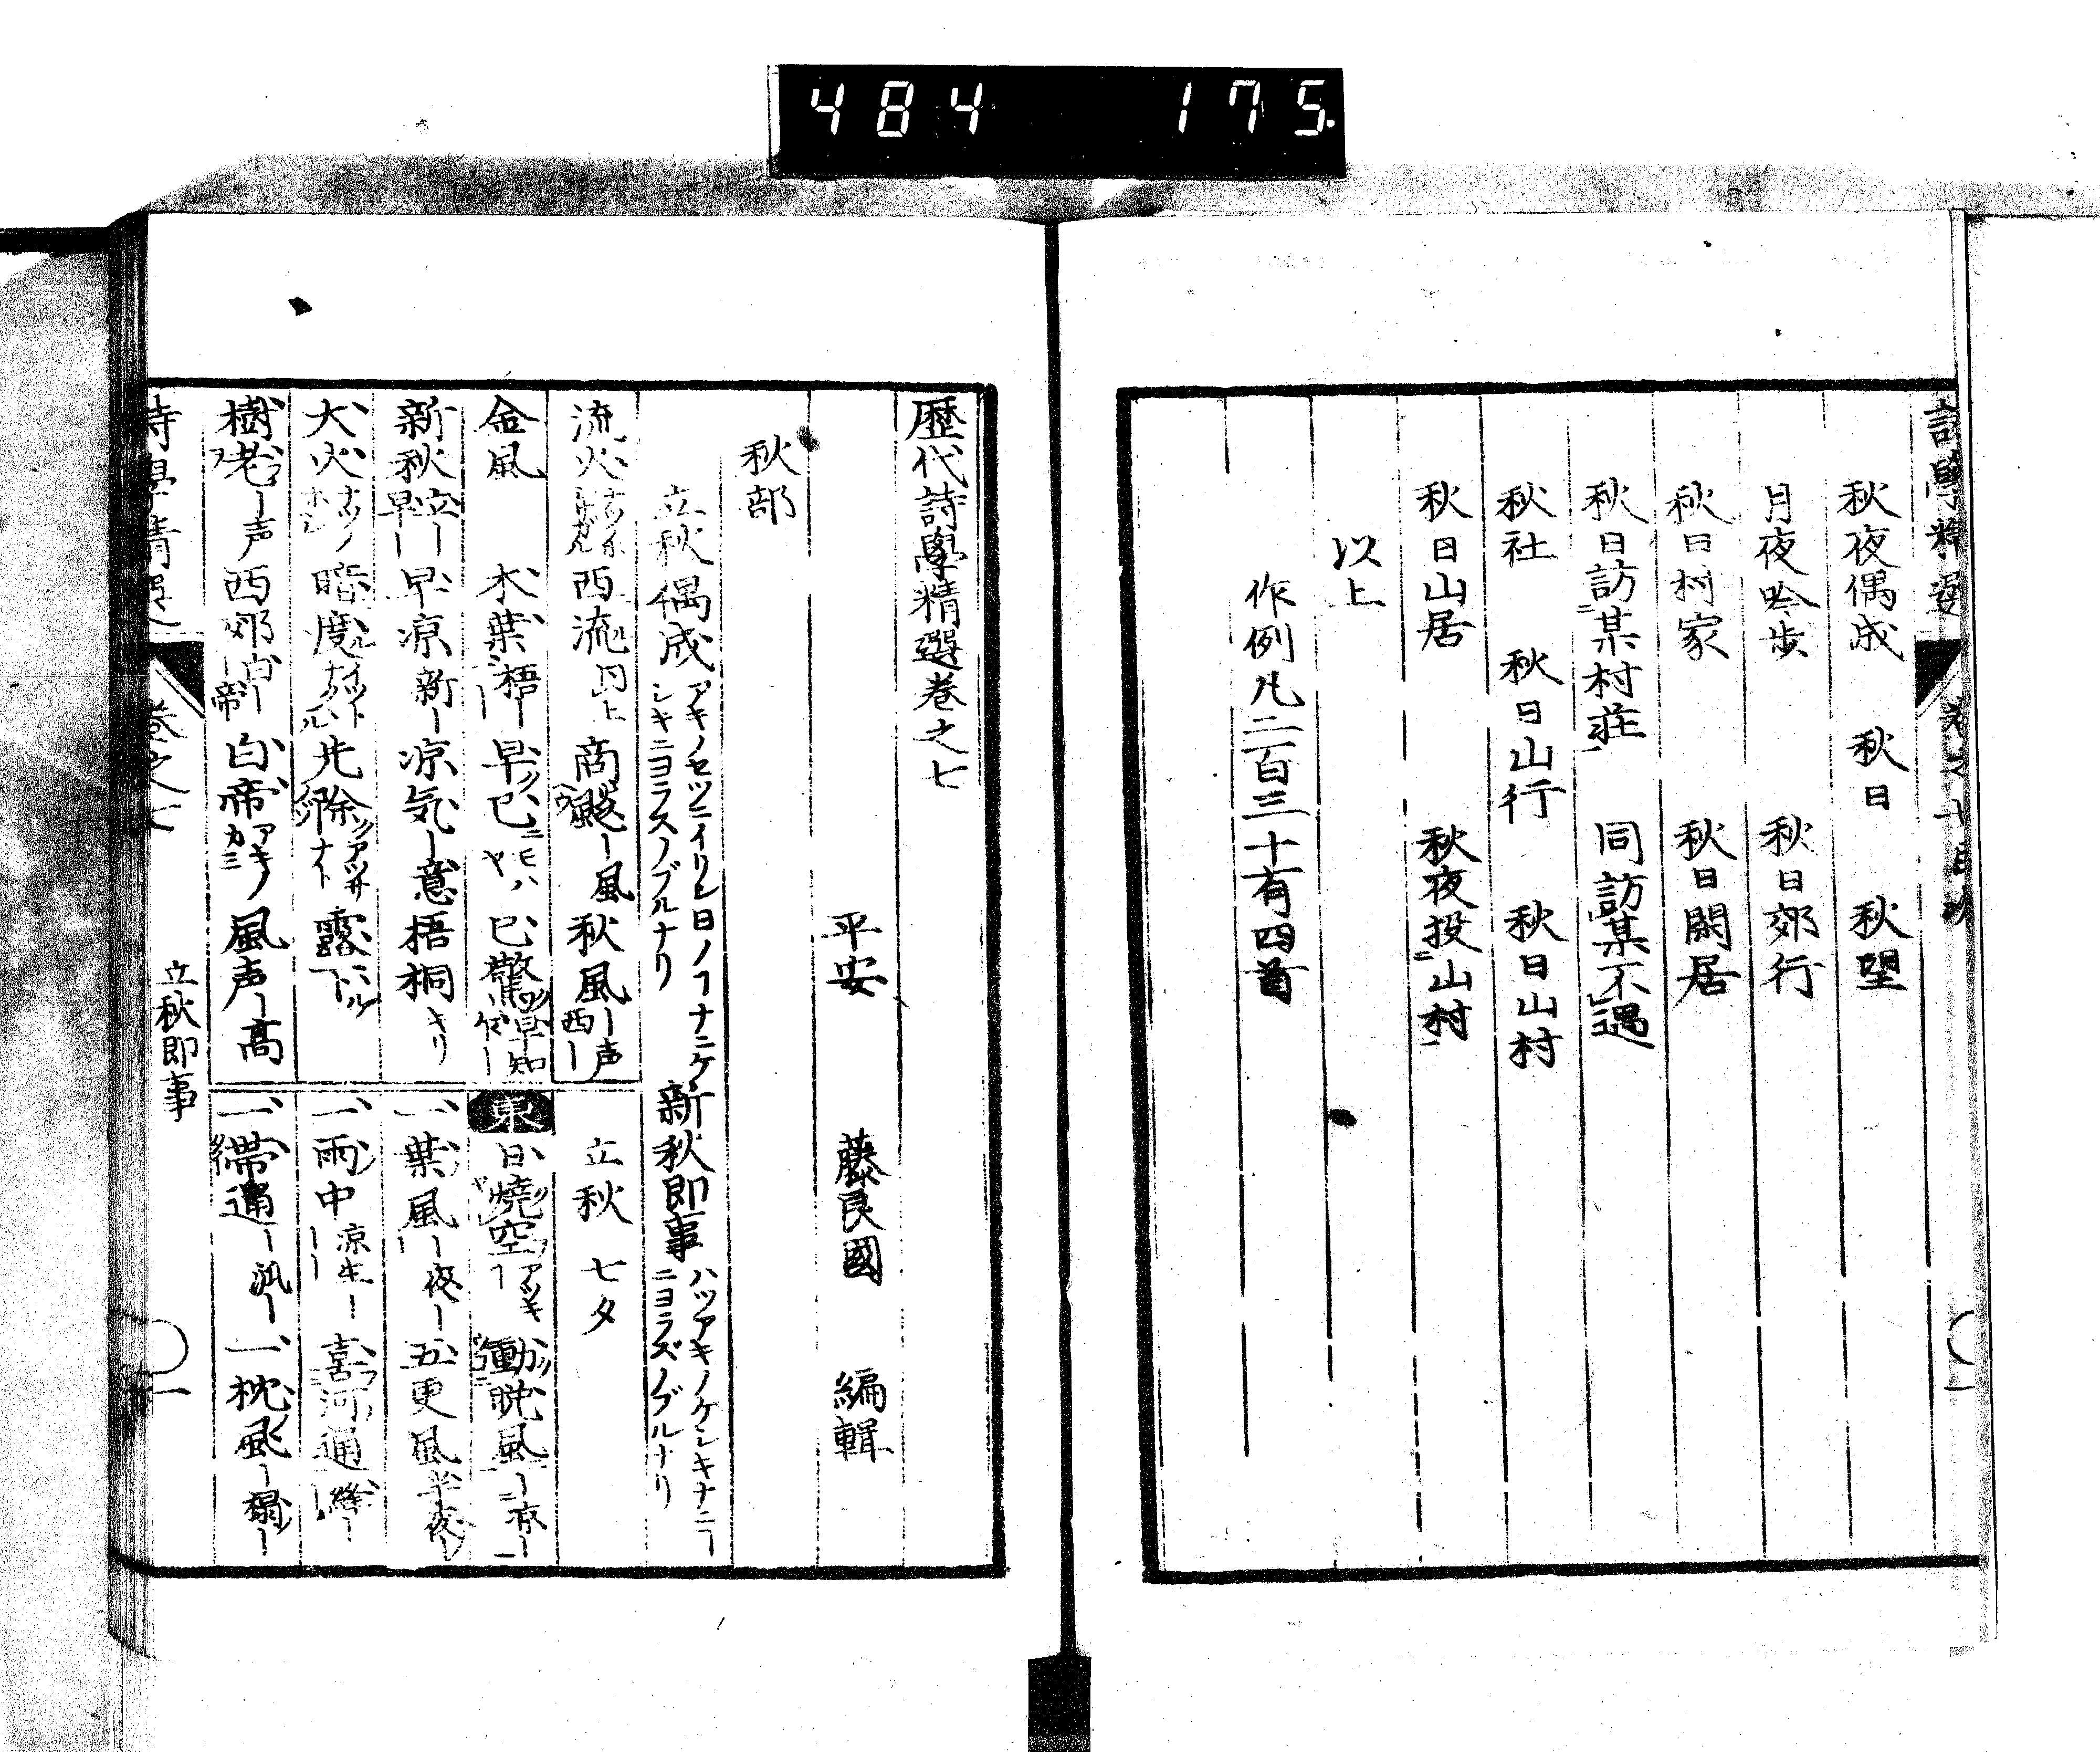 484 175.
秋夜偶成 秋日 秋望
月夜吟歩 秋日郊行
秋日村家 秋日閑居
秋日訪某村荘 同訪某不遇
秋社 秋日山行 秋日山村
秋日山居 秋夜投山村
以上
作例凡二百三十有四首
歴代詩學精選巻之七
平安 藤良國 編輯
秋部
立秋偶成 アキノセツニイリシ日ノフナニケシキニヨラスノブルナリ 新秋即事 ハツアキノケシキナニニヨラズノブルナリ
流火 西流 同上 商飈ー風 秋風ー声西ー
金風 木葉梧ー 早已 已驚早知
新秋立ー早ー 早凉新ー 凉気ー意 梧桐キリ
大火 暗度 先除 露下
樹老ー声 西郊 白帝アキノカミ 風声ー高
立秋 七夕
東 日燒空 動晩風ー凉ー
一葉風ー夜ー 五更風半夜
一雨中凉生ー 喜河通
一帶通 一枕風
巻之七 立秋即事 一